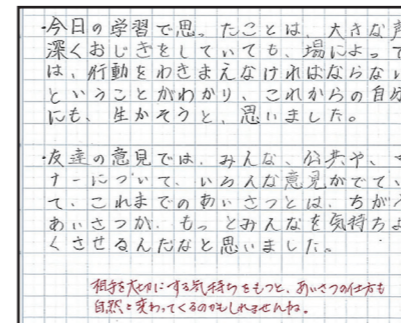 ・今日の学習で思ったことは、大きな声
深くおじぎをしていても、場によって
は、行動をわきまえなければならない
ということがわかり、これからの自分
にも、生かそうと、思いました。
・友達の意見では、みんな、公共や、マ
ナーについて、いろんな意見がでてい
て、これまでのあいさつとは、ちがう
あいさつが、もっとみんなを気持ちよ
くさせるんだなと思いました。
相手を大切にする気持ちをもつと、あいさつの仕方も
自然と変わってくるのかもしれませんね。